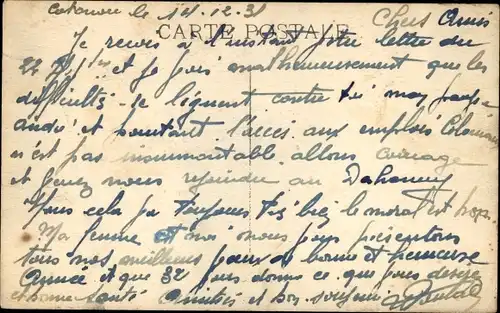 Cotonou le 14.12.31
Chers Amis
CARTE POSTALE
Je reçois à l'instant votre lettre du
22 9bre et je vois malheureusement que les
difficultés se liguent contre toi mon
andré et pourtant l'accès aux emplois Coloniaux
n'est pas insurmontable allons courage
et venez nous rejoindre au Dahomey
Nous cela va toujours très bien le moral est
Ma femme et moi nous vous présentons
tous nos meilleurs vœux de bonne et heureuse
Année et que 32 vous donne ce que vous désirez
et bonne santé Amitiés et bon souvenir